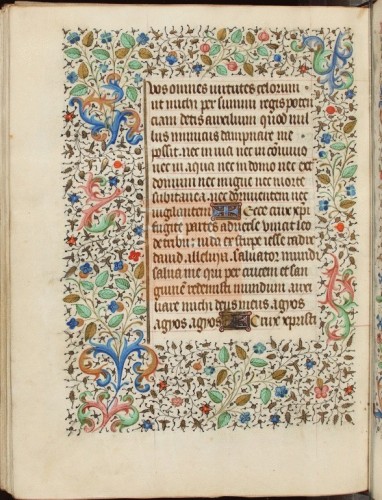 vos omnes virtutes celorum
ut michi per summi regis poten
ciam detis auxilium quod nul
lus inimicus dampnare me
possit. nec in via nec in convivio
nec in aqua nec in domo nec ext
domum nec in igne nec morte
subitanea. nec dormientem nec
vigilantem Ecce crux xpi
fugite partes adverse vincit leo
de tribu iuda ex stirpe iesse radix
david. alleluya. salvator mundi
salva me qui per crucem et san
guinem redemisti mundum. auxi
liare michi deus meus. agyos
agyos. agyos. Crux xpristi